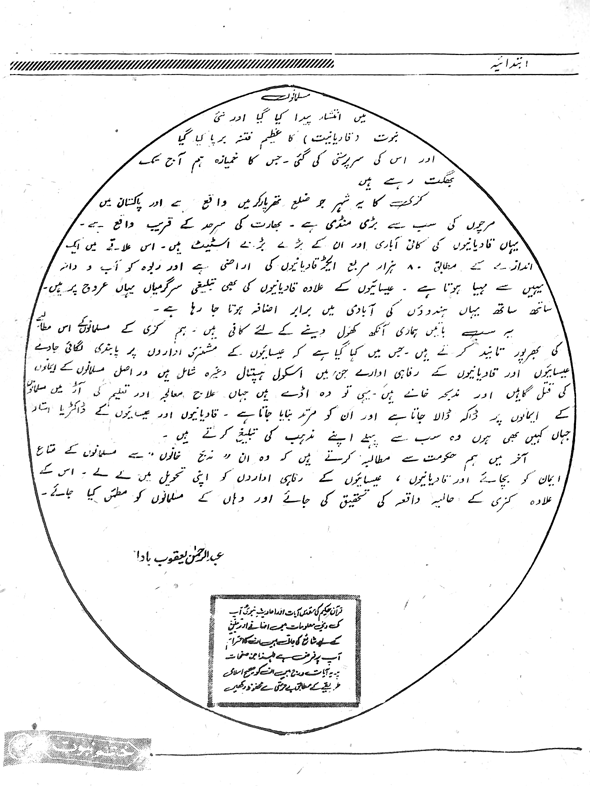 ابتدائیہ
مسلمانوں
میں انتشار پیدا کیا گیا اور نئی
نبوت (قادیانیت) کا عظیم فتنہ برپا کیا گیا
اور اس کی سرپرستی کی گئی۔ جس کا خمیازہ ہم آج تک
بھگت رہے ہیں
کنری کا یہ شہر جو ضلع تھرپارکر میں واقع ہے اور پاکستان میں
مرچوں کی سب سے بڑی منڈی ہے۔ بھارت کی سرحد کے قریب واقع ہے۔
یہاں قادیانیوں کی کافی آبادی اور ان کے بڑے بڑے اسٹیٹ ہیں۔ اس علاقے میں ایک
اندازے کے مطابق ۸۰ ہزار مربع ایکڑ قادیانیوں کی اراضی ہے اور ربوہ کو آب و دانہ
یہیں سے مہیا ہوتا ہے۔ عیسائیوں کے علاوہ قادیانیوں کی بھی تبلیغی سرگرمیاں یہاں عروج پر ہیں۔
ساتھ ساتھ یہاں ہندوؤں کی آبادی میں برابر اضافہ ہوتا جا رہا ہے۔
یہ سب باتیں ہماری آنکھ کھول دینے کے لئے کافی ہیں۔ ہم کنری کے مسلمانوں کے اس مطالبے
کی بھرپور تائید کرتے ہیں۔ جس میں کہا گیا ہے کہ عیسائیوں کے مشنری اداروں پر پابندی لگائی جائے
عیسائیوں اور قادیانیوں کے رفاہی ادارے جن میں اسکول ہسپتال وغیرہ شامل ہیں در اصل مسلمانوں کے ایمانوں
کی قتل گاہیں اور مذبحہ خانے ہیں۔ یہی تو وہ اڈے ہیں جہاں علاج معالجہ اور تعلیم کی آڑ میں مسلمانوں
کے ایمانوں پر ڈاکہ ڈالا جاتا ہے اور ان کو مرتد بنایا جاتا ہے۔ قادیانیوں اور عیسائیوں کے ڈاکٹر یا استاد
جہاں کہیں بھی ہوں وہ سب سے پہلے اپنے مذہب کی تبلیغ کرتے ہیں۔
آخر میں ہم حکومت سے مطالبہ کرتے ہیں کہ وہ ان "مذبح خانوں" سے مسلمانوں کے متاع
ایمان کو بچائے اور قادیانیوں، عیسائیوں کے رفاہی اداروں کو اپنی تحویل میں لے لے۔ اس کے
علاوہ کنری کے حالیہ واقعہ کی تحقیق کی جائے اور وہاں کے مسلمانوں کو مطمئن کیا جائے۔
عبدالرحمٰن یعقوب باوا
قرآن حکیم کی مقدس آیات اور احادیث نبوی آپ
کی دینی معلومات میں اضافے اور تبلیغ
کے لیے شائع کی جاتی ہیں ان کا احترام
آپ پر فرض ہے لہٰذا جن صفحات
پر یہ آیات درج ہیں ان کو صحیح اسلامی
طریقے کے مطابق بے حرمتی سے محفوظ رکھیں
ختم نبوت